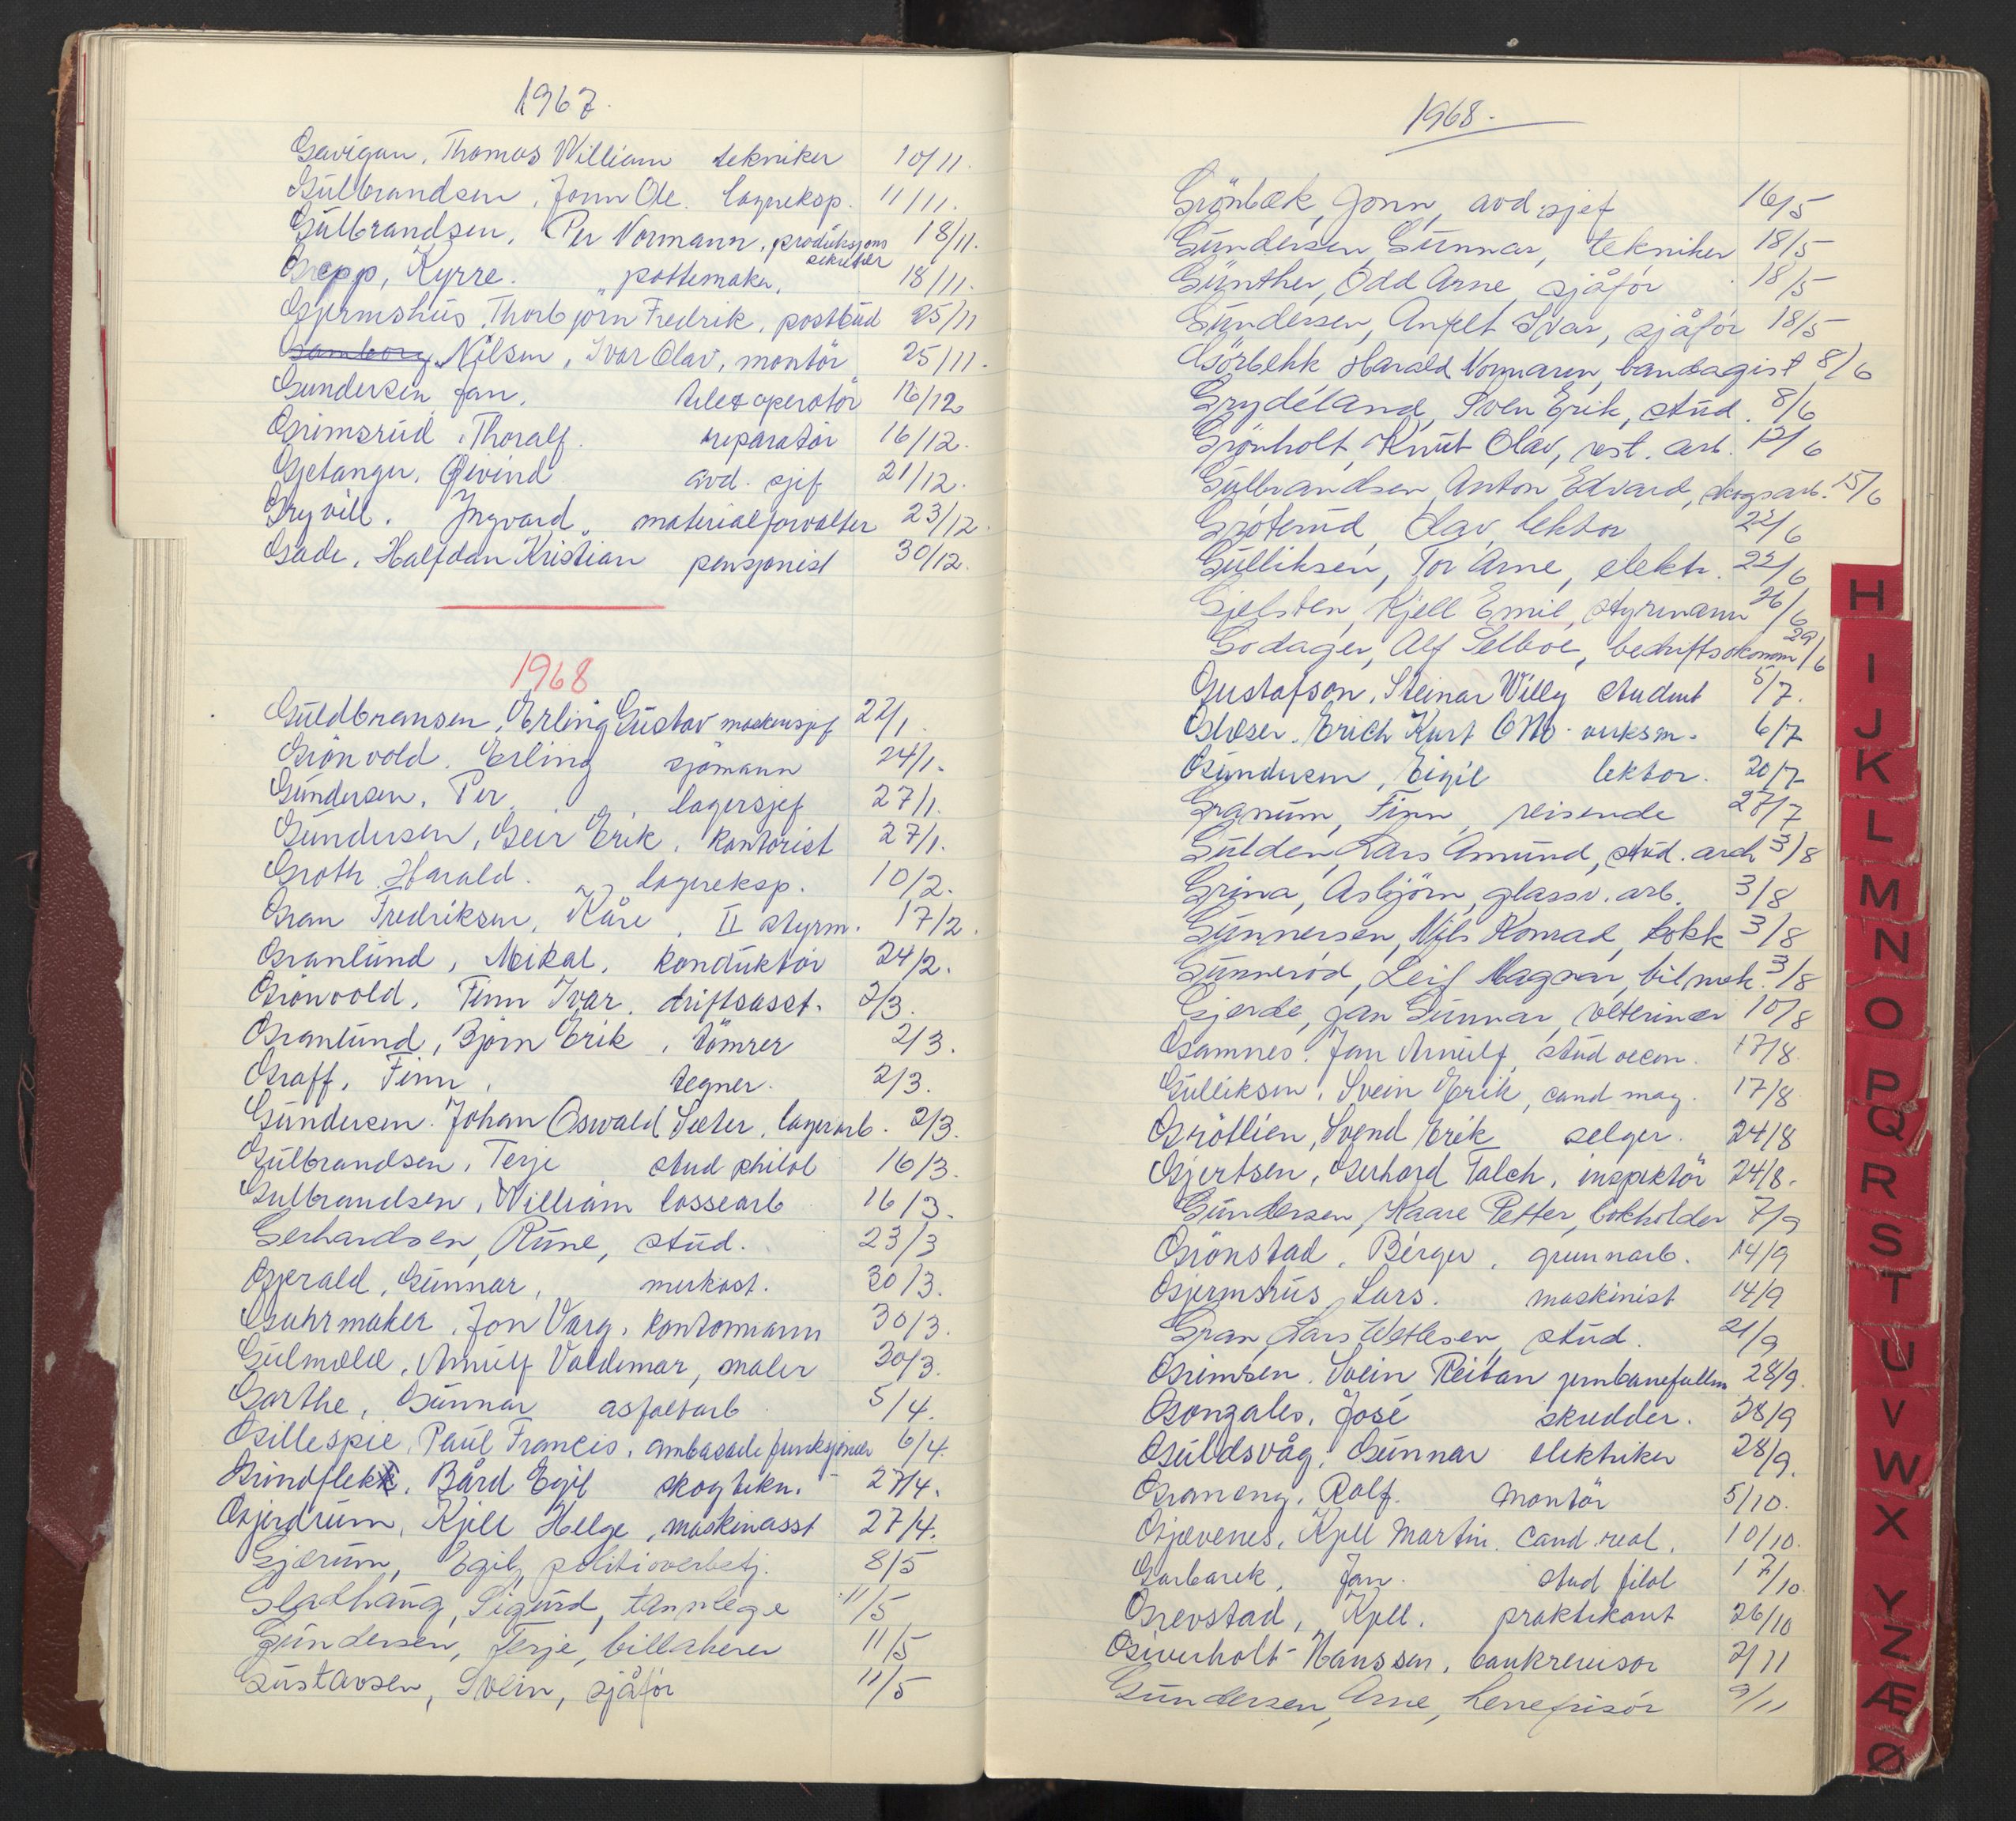 1967.
Gavigan, Thomas William tekniker 10/11.
Gulbrandsen, Jonn Ole. lagereksp. 11/11.
Gulbrandsen, Per Normann, produksjons 18/11.
sekretær
Grepp, Kyrre. pottemaker, 18/11.
Gjermshus, Thorbjørn Fredrik, postbud 25/11
Gamborg Nilsen, Ivar Olav, montör 25/11.
Gundersen Jan, telexoperatör 16/12
Grimsrud, Thoralf. reparatör 16/12.
Gjetanger, Øivind avd. sjef 21/12.
Gryvill. Ingvard, materialforvalter 23/12.
Gade, Halfdan Kristian pensjonist 30/12.
1968
Guldbransen, Erling Gustav maskinsjef 22/1.
Grönvold, Erling sjömann 24/1.
Gundersen, Per, lagersjef 27/1.
Gundersen, Geir Erik, kontorist 27/1.
Groth, Harald. lagereksp. 10/2.
Gran Fredriksen, Kåre, II styrm. 17/2.
Granlund, Mikal, konduktör 24/2.
Grönvold, Finn Ivar, driftsasst. 2/3.
Granlund, Björn Erik, tömrer 2/3.
Graff, Finn, tegner. 2/3.
Gundersen. Johan Oswald Sæter, lagerarb. 2/3.
Gulbrandsen, Terje stud philol 16/3.
Gulbrandsen, William lossearb 16/3.
Gerhardsen, Rune, stud. 23/3
Gjerald, Gunnar, merkost. 30/3.
Guhrmaker, Jon Varg, kontormann 30/3.
Gulmæld, Arnulf Valdemar, maler 30/3.
Garthe, Gunnar asfaltarb 5/4.
Gillespie, Paul Francis, ambasade funksjonær 6/4.
Grindflek, Bård Egil skogtekn. 27/4.
Gjerdrum, Kjell Helge, maskinasst 27/4.
Gjærum, Egil, politioverbetj. 8/5
Gladhaug, Sigurd, tannlege 11/5
Gundersen, Terje, billakerer 11/5
Gustavsen, Svein, sjåför 11/5
1968.
Grönbæk, Jonn, avd sjef 16/5
Gundersen, Gunnar, tekniker 18/5
Günther, Odd Arne, sjåför 18/5
Gundersen, Anfelt Ivar, sjåför 18/5
Görbehk Harald Normann, bandagist 8/6
Grydeland, Sven Erik, stud. 8/6
Grönholt, Knut Olav, rest. arb. 12/6
Gulbrandsen, Anton Edvard, skogsarb. 15/6
Gröterud, Olav, lektor 22/6
Gulliksen, Tor Arne, elektr. 22/6
Gjelsten, Kjell Emil, styrmann 26/6
Godager, Alf Selboe, bedriftsøkonom 29/6
Gustafson, Steinar Willy student 5/7.
Glæser, Erich Kurt Otto verksm. 6/7
Gundersen, Eigil lektor. 20/7
Granum, Finn, reisende 27/7
Gulden, Lars Amund, stud. arch 3/8
Grina, Asbjörn, glassv. arb. 3/8
Gunnersen, Nils Konrad, kokk 3/8
Gunneröd, Leif Magnar, bilmek. 3/8
Gjerde, Jan Gunnar, veterinær 10/8
Gamnes. Jan Arnulf, stud oecon. 17/8
Gulliksen, Svein Erik, cand mag. 17/8
Gröttlien, Svend Erik selger. 24/8
Gjertsen, Gerhard Falch, inspektör 24/8.
Gundersen, Kaare Petter, bokholder 7/9
Grönstad, Birger, grunnarb. 14/9
Gjermshus, Lars. maskinist 14/9
Gran, Lars Wetlesen, stud. 21/9
Grimsen. Svein Reitan jernbanefullm 28/9.
Gonzales, José skredder. 28/9
Guldsvåg, Gunnar elektriker 28/9.
Graneng, Rolf. montör 5/10.
Gjævenes, Kjell Martin. cand real. 10/10.
Garbarek, Jan. stud filol 17/10.
Grevstad, Kjell. praktikant 26/10
Giverholt-Hanssen, bankrevisor 2/11
Gundersen, Arne, herrefrisör 9/11
H
I
J
K
L
M
N
O
P
Q
R
S
T
U
V
W
X
Y
Z
Æ
Ø